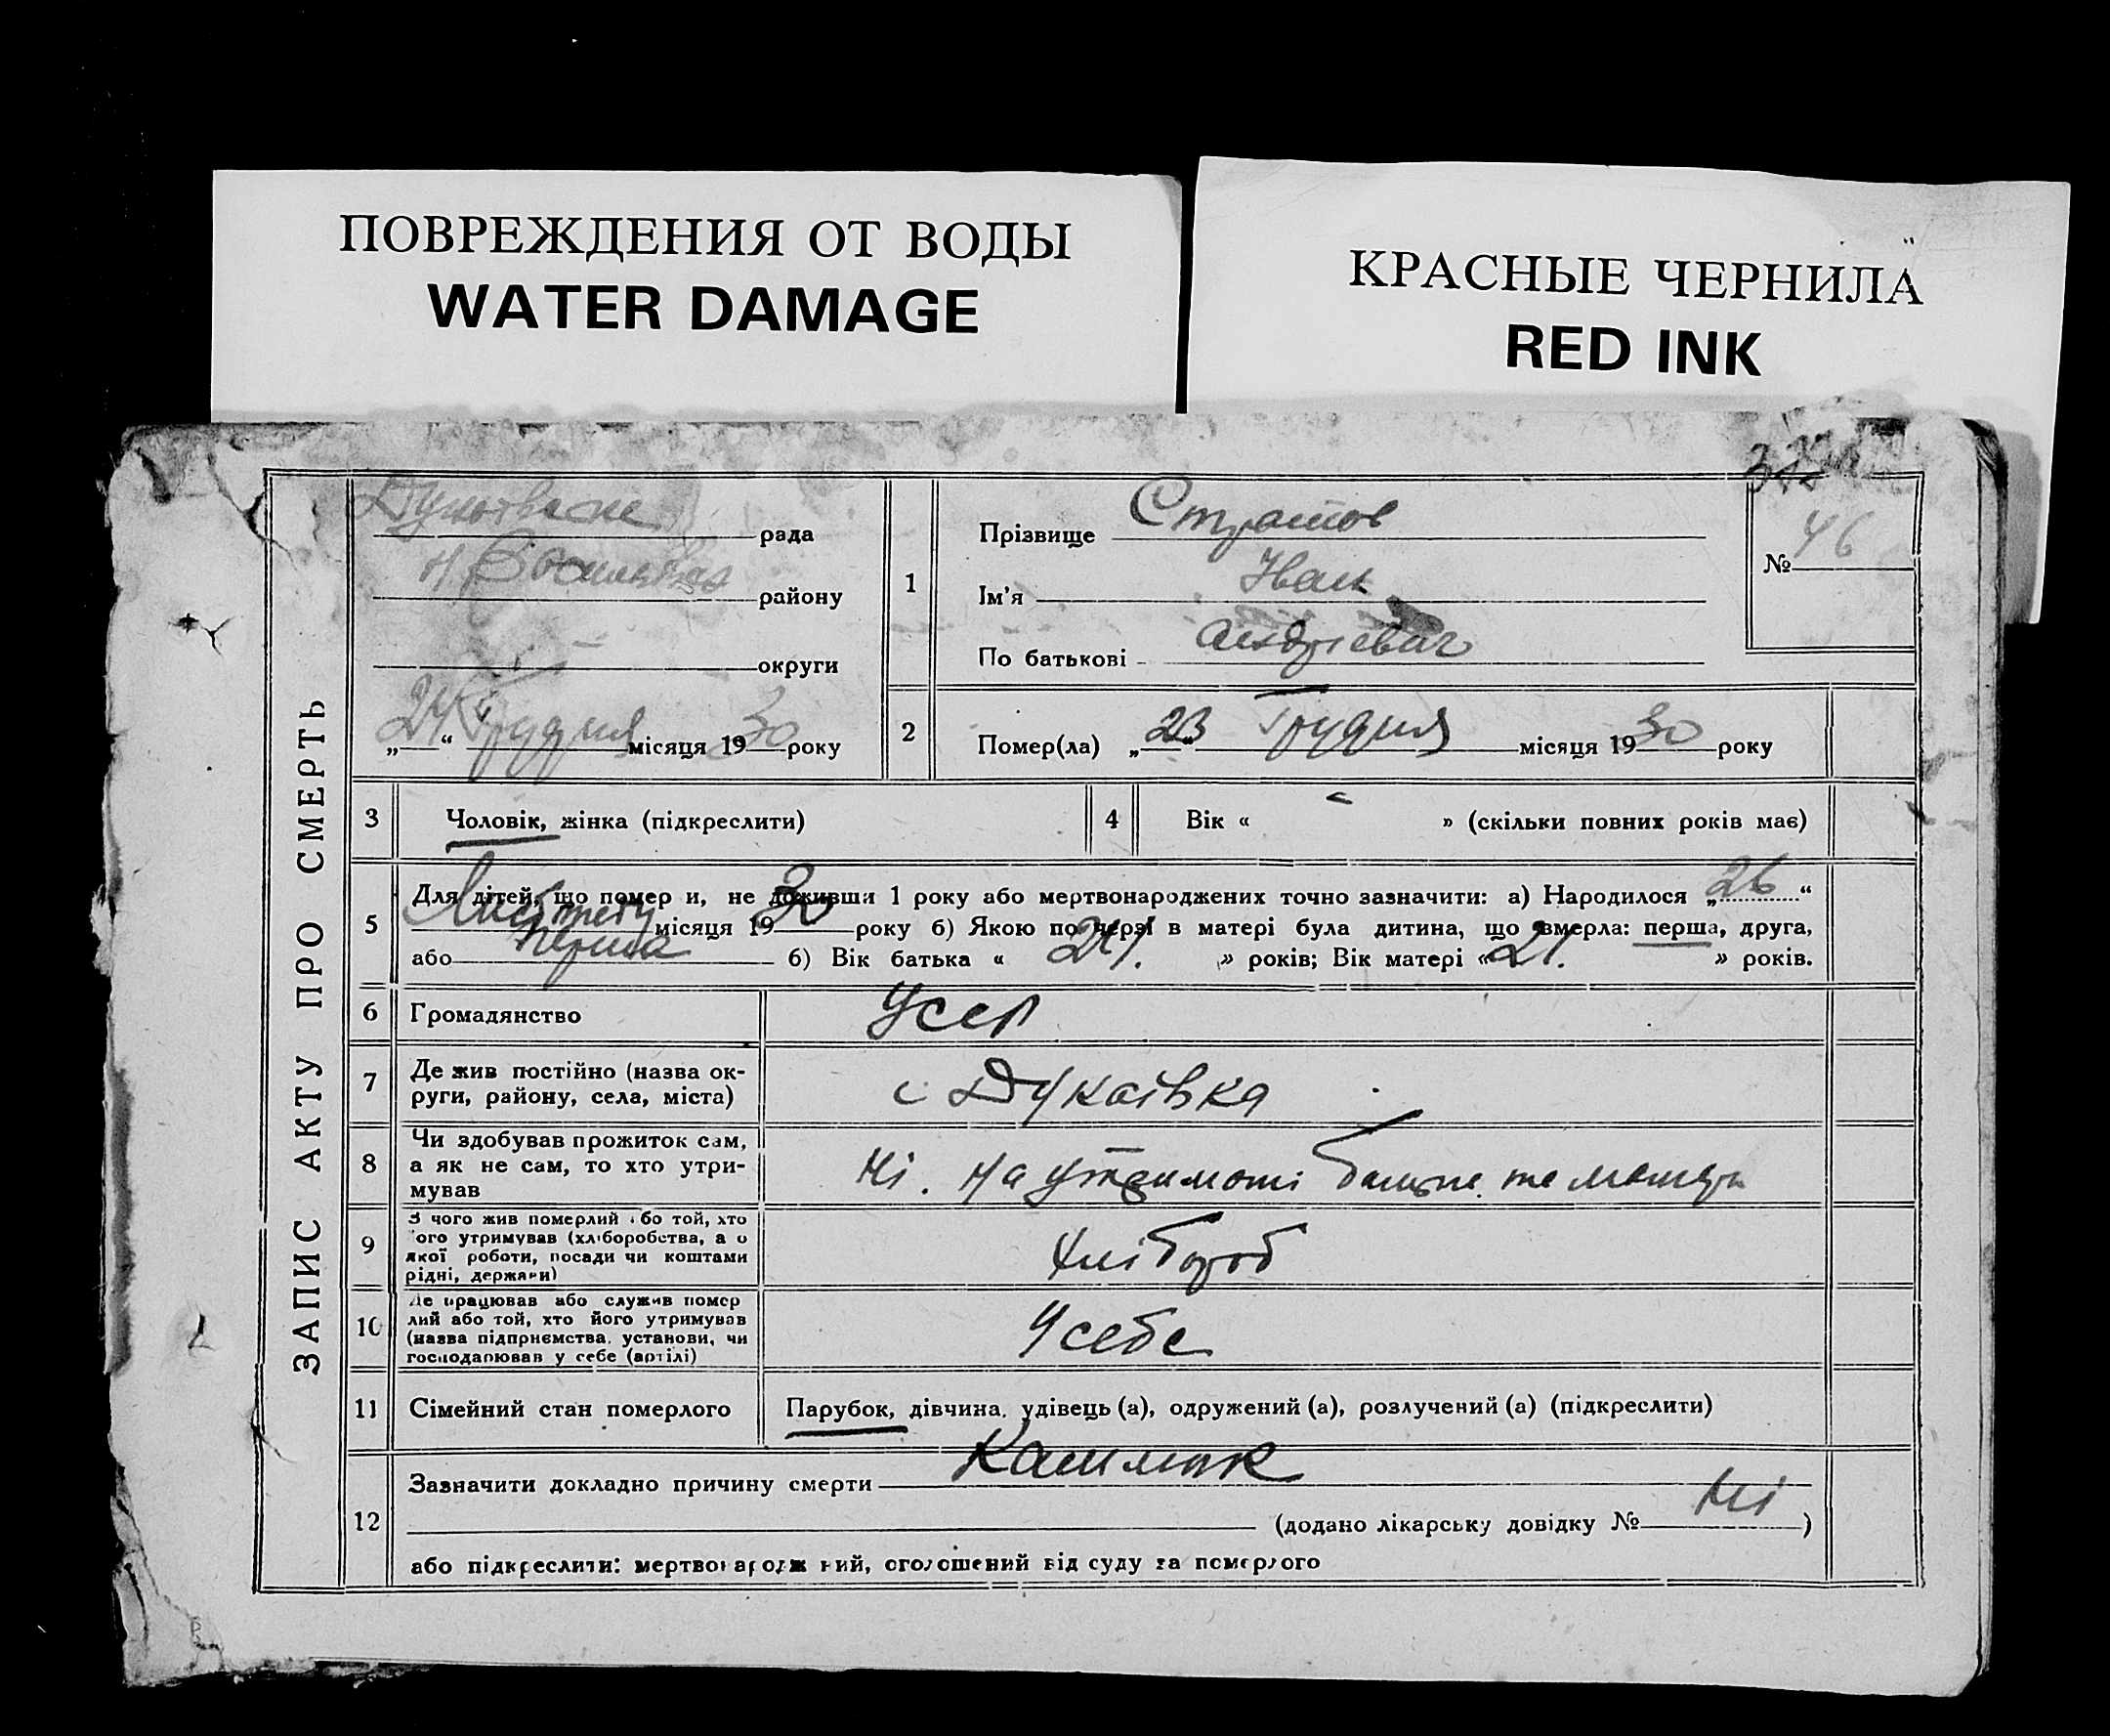 ПОВРЕЖДЕНИЯ ОТ ВОДЫ
WATER DAMAGE
КРАСНЫЕ ЧЕРНИЛА
RED INK
ЗАПИС АКТУ ПРО СМЕРТЬ
рада
району
округи
„24“ Грудня місяця 1930 року
1
Прізвище
Ім'я Іван
По батькові Андрієвич
№ 46
2
Помер(ла) „23“ Грудня місяця 1930 року
3 Чоловік, жінка (підкреслити)
4 Вік « » (скільки повних років має)
5
Для дітей, що померли, не доживши 1 року або мертвонароджених точно зазначити: а) Народилося „26“
місяця 1930 року б) Якою по черзі в матері була дитина, що вмерла: перша, друга,
або перша б) Вік батька « 24. » років; Вік матері « 21. » років.
6 Громадянство Усср
7 Де жив постійно (назва ок-
руги, району, села, міста)
с
8 Чи здобував прожиток сам,
а як не сам, то хто утри-
мував
Ні. На утриманні батька та матери
9 З чого жив померлий або той, хто
його утримував (хліборобства, а о
якої роботи, посади чи коштами
рідні, держави)
Хлібороб
10 Де працював або служив помер
лий або той, хто його утримував
(назва підприємства, установи, чи
господарював у себе (артілі)
У себе
11 Сімейний стан померлого
Парубок, дівчина, удівець (а), одружений (а), розлучений (а) (підкреслити)
12
Зазначити докладно причину смерти Кашлюк
(додано лікарську довідку № Ні )
або підкреслити: мертвонароджений, оголошений від суду за померлого